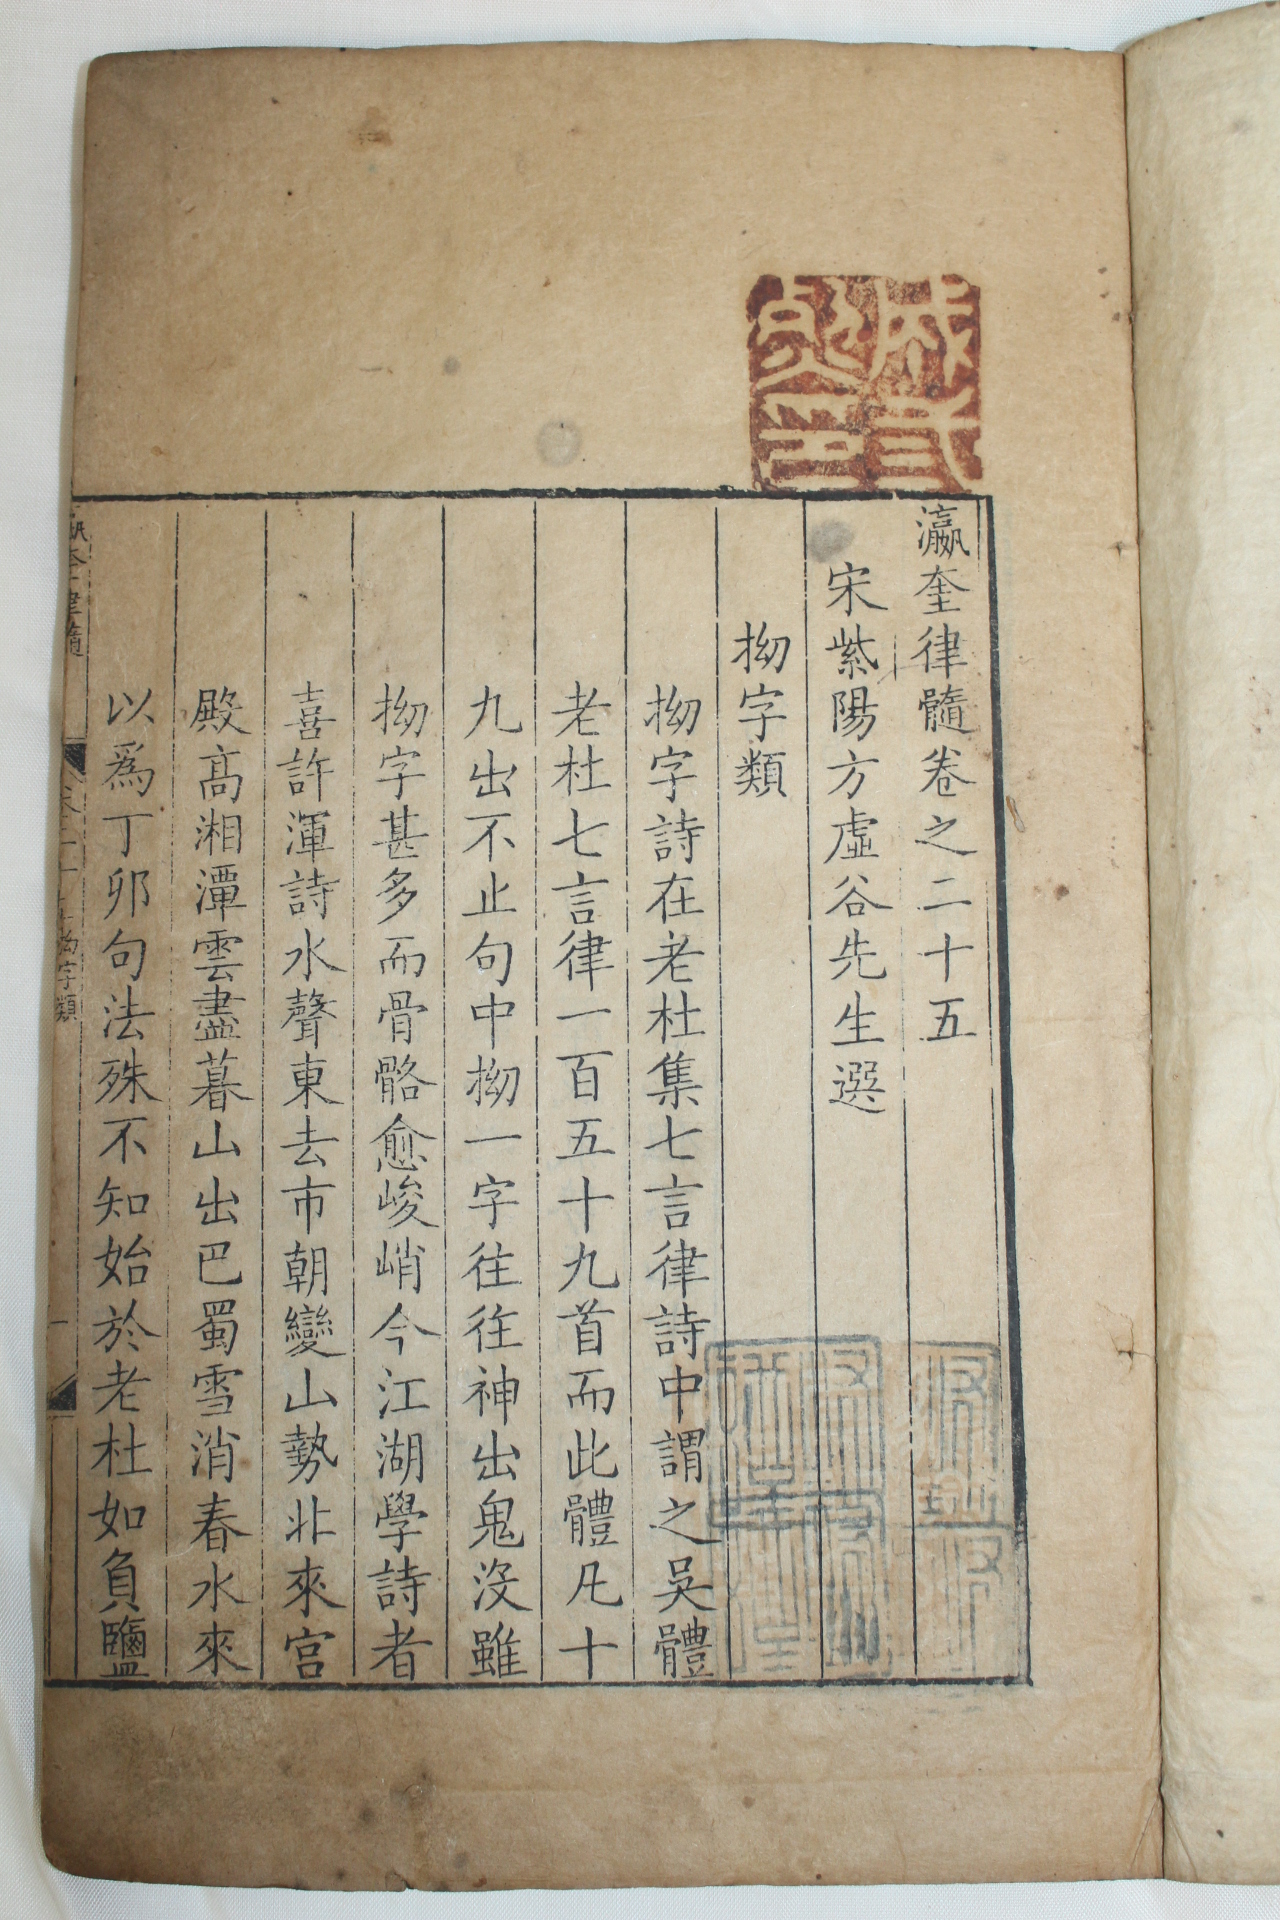 瀛奎律髓卷之二十五
宋紫陽方虛谷先生選
拗字類
拗字詩在老杜集七言律詩中謂之吳體
老杜七言律一百五十九首而此體凡十
九出不止句中拗一字往往神出鬼沒雖
拗字甚多而骨骼愈峻峭今江湖學詩者
喜許渾詩水聲東去市朝變山勢北來宮
殿高湘潭雲盡暮山出巴蜀雪消春水來
以爲丁卯句法殊不知始於老杜如負鹽
奎律髓 卷二十 拗字類 一